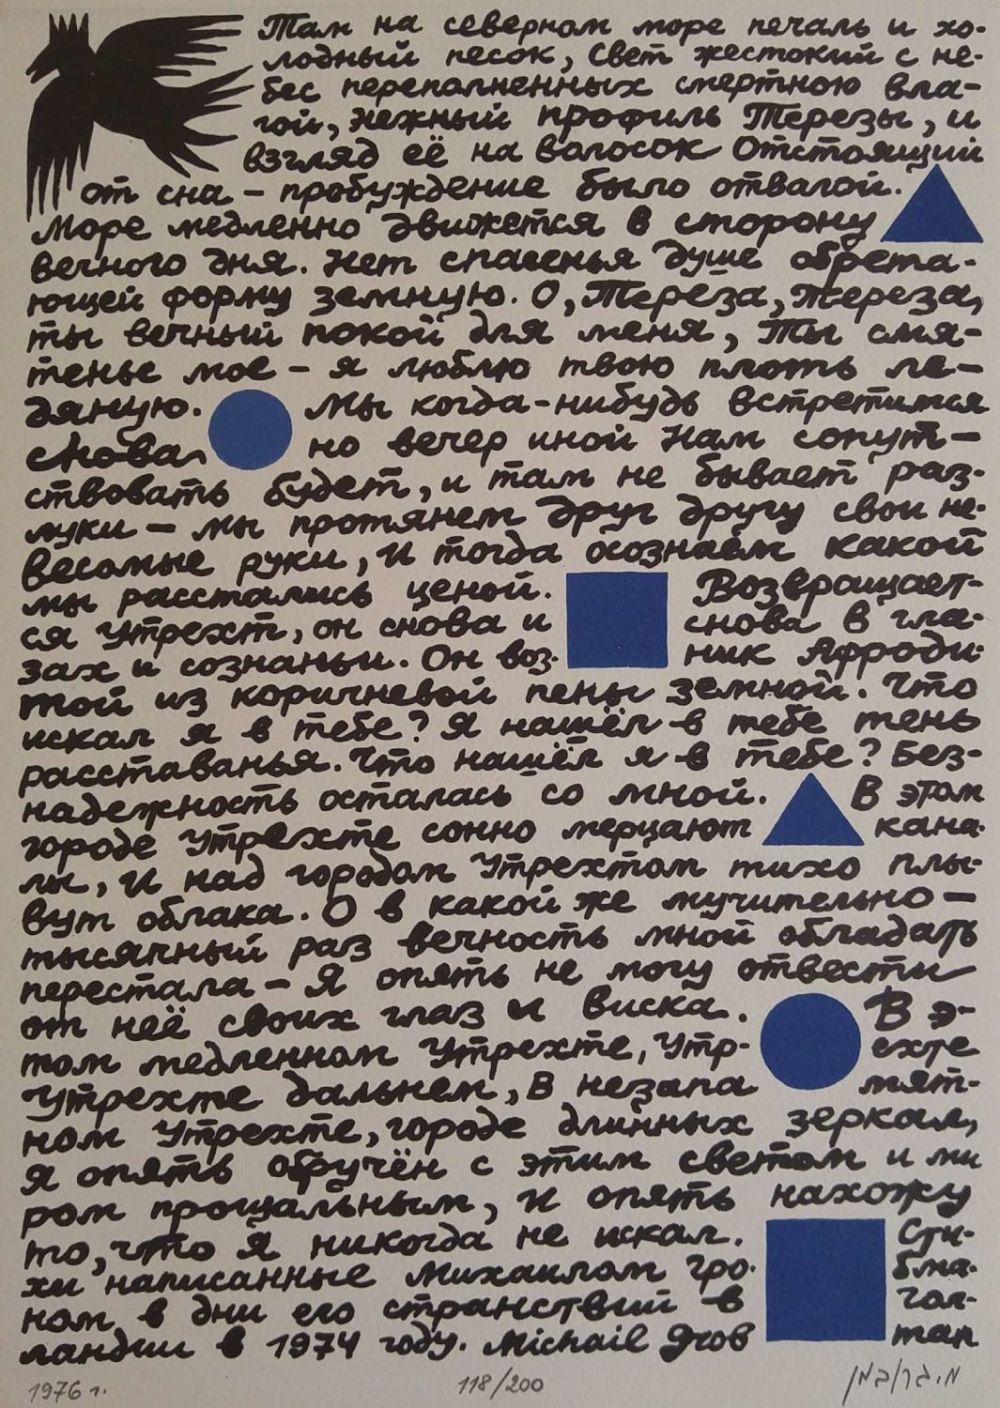 Там на северном море печаль и хо-
лодный песок, Свет жестокий с не-
бес переполненных смертною вла-
гой, нежный профиль Терезы, и
взгляд её на волосок Отстоящий
от сна – пробуждение было отвагой.
Море медленно движется в сторону
вечного дня. Нет спасенья душе обрета-
ющей форму земную. О, Тереза, Тереза,
ты вечный покой для меня, Ты смя-
тенье мое – я люблю твою плоть ле-
дяную. Мы когда-нибудь встретимся
снова но вечер иной Нам сопут-
ствовать будет, и там не бывает раз-
луки – мы протянем друг другу свои не-
весомые руки, И тогда осознаём какой
мы расстались ценой. Возвращает-
ся Утрехт, он снова и снова в гла-
зах и сознаньи. Он воз- ник Афроди-
той из коричневой пены земной. Что
искал я в тебе? Я нашёл в тебе тень
расставанья. Что нашёл я в тебе? Без-
надежность осталась со мной. В этом
городе Утрехте сонно мерцают кана-
лы, И над городом Утрехтом тихо плы-
вут облака. О в какой же мучительно –
тысячный раз вечность мной обладать
перестала – Я опять не могу отвести
от неё своих глаз и виска. В э-
том медленном Утрехте, Утр- ехте
Утрехте дальнем, В незапа мят-
ном Утрехте, городе длинных зеркал,
Я опять обручён с этим светом и ми
ром прощальным, И опять нахожу
то, что Я никогда не искал. Сти-
хи написанные Михаилом Гро- бма-
ном в дни его странствий в гол-
ландии в 1974 году. Michail Grob man
1976 г. 118/200 מ. גרובמן